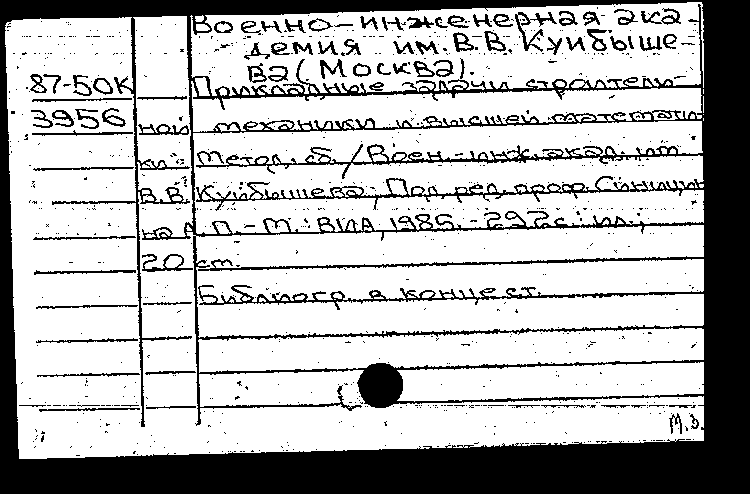 Военно-инженерная ака-
демия им. В.В. Куйбыше-
ва (Москва).
87-50К Прикладные задачи строитель-
3956 ной механики и высшей математи-
ки: Метод. сб. / Воен.-инж. акад. им.
В.В. Куйбышева; Под ред. проф. Синицы-
на А.П. - М.: ВИА, 1985. - 292 с.: ил.;
20 см.
Библиогр. в конце ст.
М.Д.